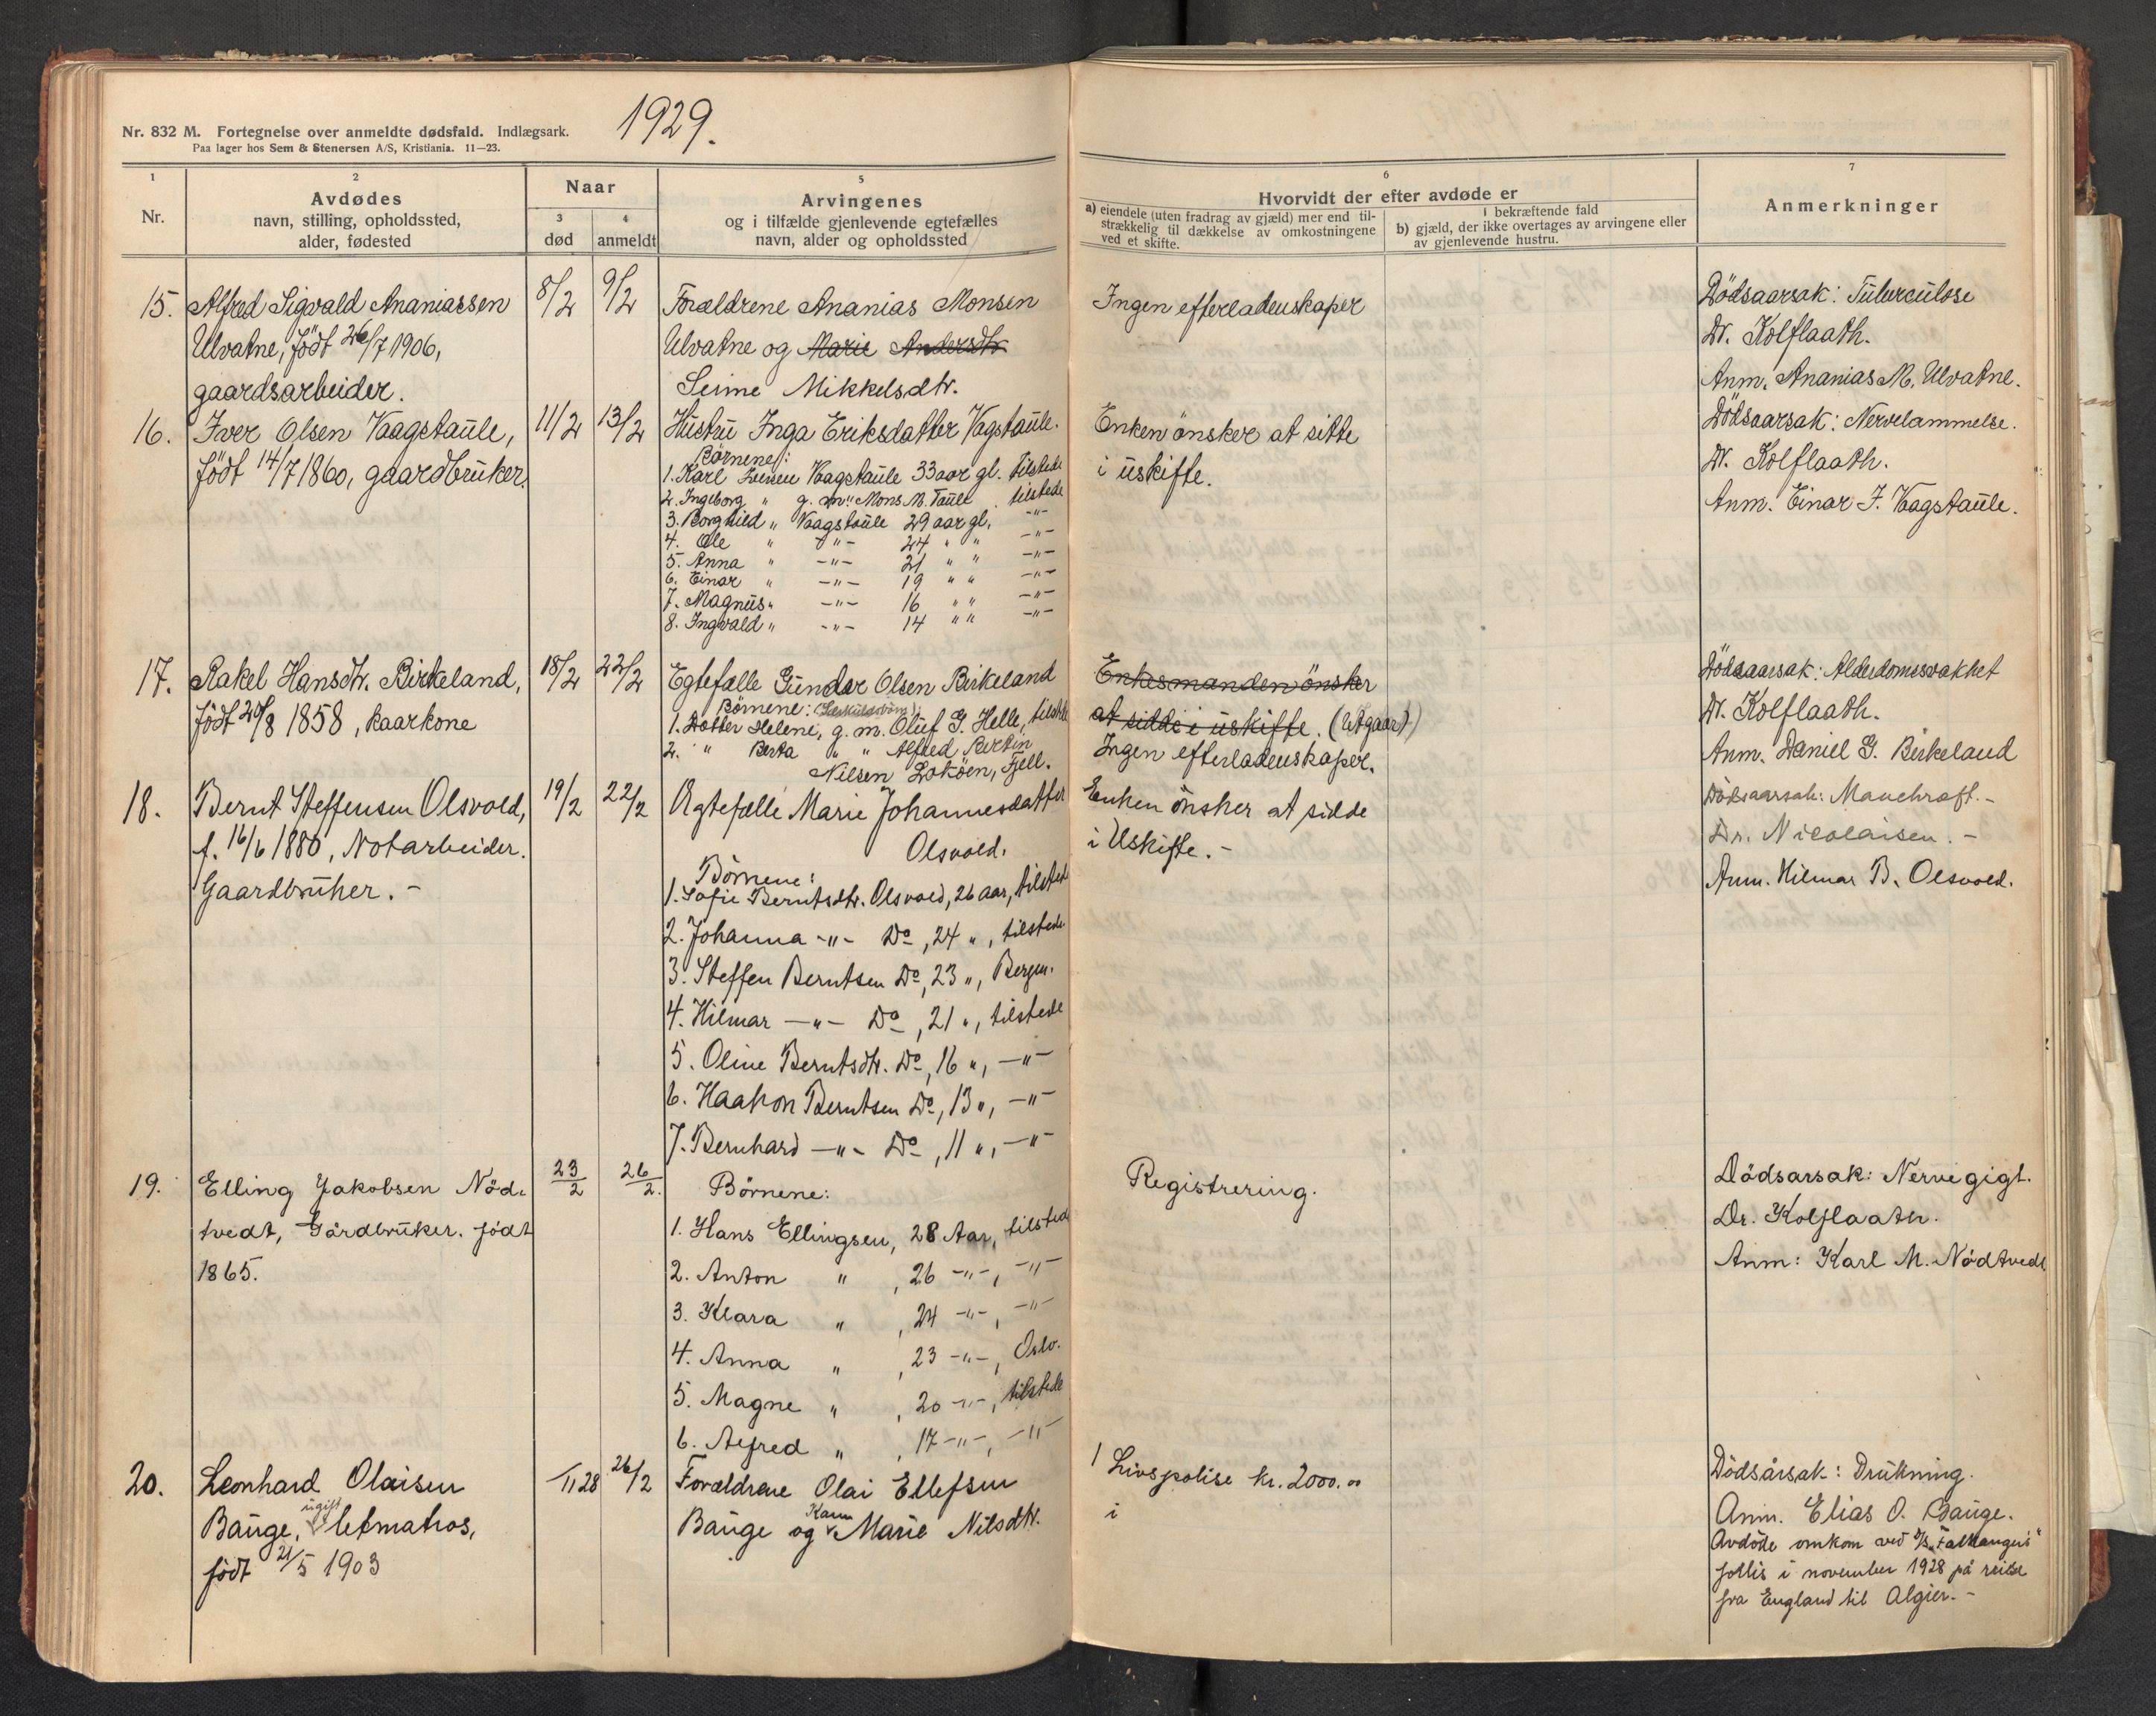 1929.
Nr. 832 M. Fortegnelse over anmeldte dødsfald. Indlægsark.
Paa lager hos Sem & Stenersen A/S, Kristiania. 11—23.
1
Nr.
2
Avdødes
navn, stilling, opholdssted,
alder, fødested
Naar
3
død
4
anmeldt
5
Arvingenes
og i tilfælde gjenlevende egtefælles
navn, alder og opholdssted
6
Hvorvidt der efter avdøde er
a) eiendele (uten fradrag av gjæld) mer end til-
strækkelig til dækkelse av omkostningene
ved et skifte.
i bekræftende fald
b) gjæld, der ikke overtages av arvingene eller
av gjenlevende hustru.
7
Anmerkninger
15. Alfred Sigvald Ananiassen
Ulvatne, født 26/7 1906,
gaardsarbeider.
8/2
9/2
Forældrene Ananias Monsen
Ulvatne og Marie Andersdtr
Serine Mikkelsdtr.
Ingen efterladenskaper
Dödsaarsak: Tuberculose
Dr. Kolflaath.
Anm. Ananias M. Ulvatne.
16. Iver Olsen Vaagstaule,
født 14/7 1860, gaardbruker.
11/2
13/2
Hustru Inga Eriksdatter Vagstaule.
Börnene:
1. Karl Iversen Vaagstaule 33 aar gl. tilstede
2. Ingeborg " g. m. Mons M. Taule tilstede
3. Borghild " Vaagstaule 29 aar gl. -"-
4. Ole " -"- 24 " " -"-
5. Anna " -"- 21 " " -"-
6. Einar " -"- 19 " " -"-
7. Magnus " -"- 16 " " -"-
8. Ingvald " -"- 14 " " -"-
Enken önsker at sitte
i uskifte.
Dödsaarsak: Nervelammelse.
Dr. Kolflaath.
Anm. Einar I. Vaagstaule.
17. Rakel Hansdtr. Birkeland,
født 20/8 1858, kaarkone
18/2
22/2
Egtefælle Gunder Olsen Birkeland
Börnene: (Særkuldsbörn)
1. Datter Helene, g. m. Oluf G. Helle, tilstede
2. " Berta " " Alfred Bertin
Nilsen Loköen, Fjell.
Enkesmanden önsker
at sidde i uskifte. (Utgaar)
Ingen efterladenskaper.
Dödsaarsak: Alderdomssvakhet
Dr. Kolflaath.
Anm. Daniel G. Birkeland
18. Bernt Steffensen Olsvold,
f. 16/6 1880, Notarbeider.
Gaardbruker. -
19/2
22/2
Ægtefælle Marie Johannesdatter
Olsvold.
Börnene:
1. Sofie Berntsdtr. Olsvold, 26 aar, tilstede
2. Johanna -"- Do, 24 ", tilstede
3. Steffen Berntsen Do, 23 ", Bergen.
4. Hilmar -"- Do, 21 ", tilstede
5. Oline Berntsdtr. Do, 16 ", -"-
6. Haakon Berntsen Do, 13 ", -"-
7. Bernhard -"- Do, 11 ", -"-
Enken önsker at sidde
i Uskifte. -
Dödsaarsak: Mavekræft. -
Dr. Nicolaisen. -
Anm. Hilmar B. Olsvold.
19. Elling Jakobsen Nöd-
tvedt, Gårdbruker. født
1865.
23/2
26/2.
Börnene:
1. Hans Ellingsen, 28 Aar, tilstede
2. Anton " , 26 -"-, -"-
3. Klara " , 24 -"-, -"-
4. Anna " , 23 -"-, Oslo.
5. Magne " , 20 -"-, tilstede
6. Alfred " , 17 -"-, -"-
Registrering.
Dödsarsak: Nervegigt.
Dr. Kolflaath.
Anm: Karl M. Nödtvedt
20. Leonhard Olaisen
Bauge, ugift letmatros,
født 21/5 1903
/11 28
26/2
Forældrene Olai Ellefsen
Bauge og Karen Marie Nilsdtr.
1 Livspolise kr. 2000.00
i
Dödsårsak: Drukning.
Anm. Elias O. Bauge.
Avdöde omkom ved s/s "Falkanger's"
forlis i november 1928 på reise
fra England til Algier. -